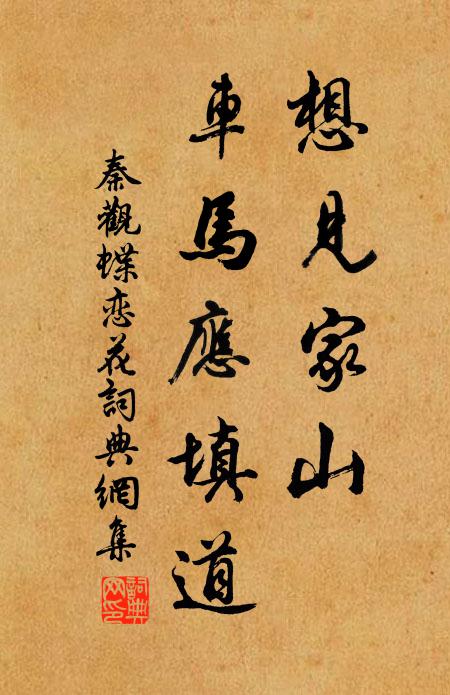 想見家山
車馬應填道
秦觀蝶恋花詞典網集
詞典网印